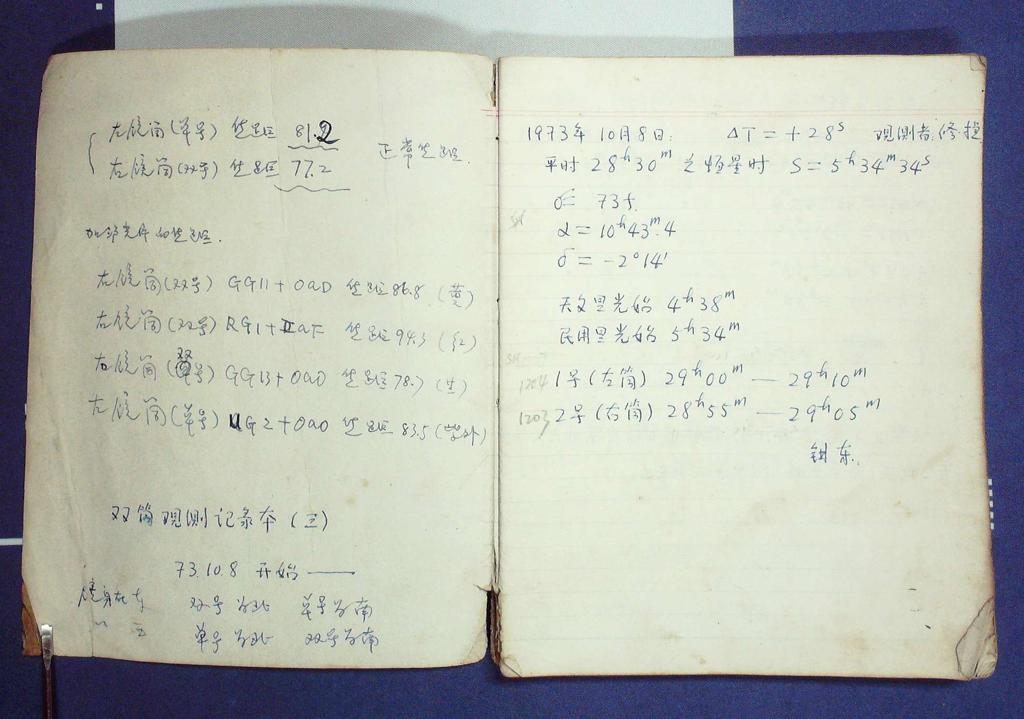 左镜筒(单号) 焦距 81.2
左镜筒(双号) 焦距 77.2
正常焦距.
加邻光片的焦距.
左镜筒(双号) GG11+OaD 焦距 86.8 (黄)
左镜筒(双号) RG1+IIaF 焦距 94.3 (红)
左镜筒(单号) GG13+OaO 焦距 78.7 (兰)
左镜筒(单号) UG2+OaO 焦距 83.5 (紫外)
双筒观测记录本 (三)
73.10.8 开始 ——
镜身在东 双号为北 单号为南
〃 西 单号为北 双号为南
1973年 10月8日: ΔT = +28ˢ 观测者:
平时 28ʰ30ᵐ 之恒星时 S = 5ʰ34ᵐ34ˢ
σ= 735.
α = 10ʰ43ᵐ.4
δ = -2°14′
天文昼光始 4ʰ38ᵐ
民用昼光始 5ʰ34ᵐ
1204 1号 (左筒) 29ʰ00ᵐ — 29ʰ10ᵐ
1203 2号 (右筒) 28ʰ55ᵐ — 29ʰ05ᵐ
镜东.